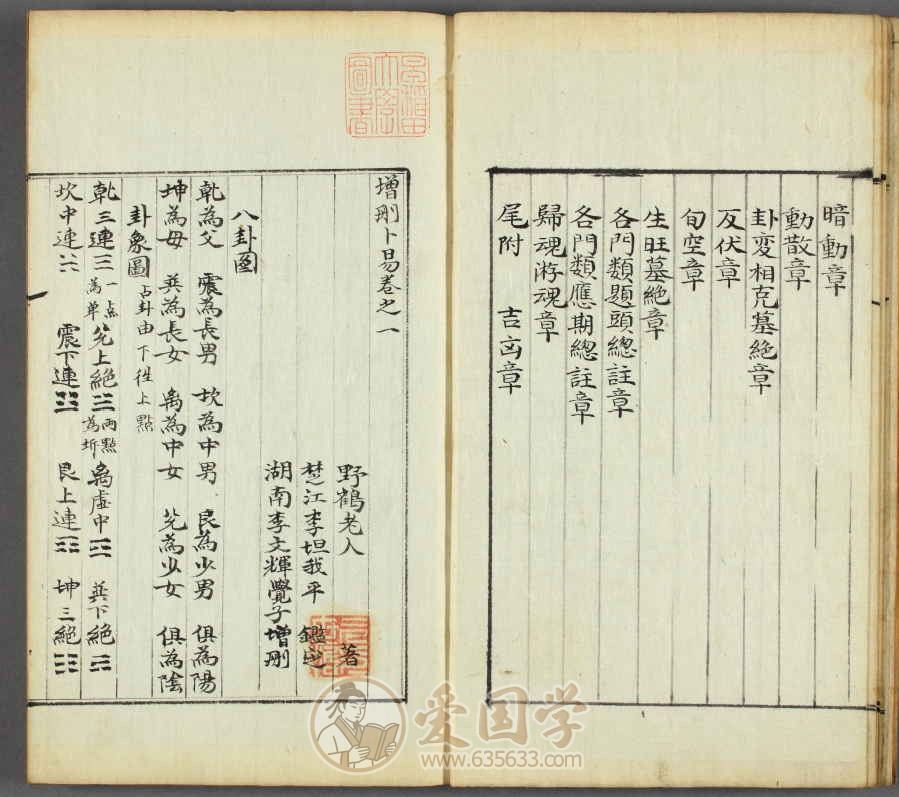 暗動章
動散章
卦変相克墓絶章
反伏章
旬空章
生旺墓絶章
各門類題頭總註章
各門類應期總註章
歸魂游魂章
尾附 吉凶章
增刪卜易卷之一
野鶴老人 著
楚江李坦我平 鑑定
湖南李文輝覺子增刪
八卦圖
乾為父 震為長男 坎為中男 艮為少男 俱為陽
坤為母 巽為長女 离為中女 兌為少女 俱為陰
卦象圖 占卦由下徃上點
乾三連☰ 一点為单 兌上絕☱ 两點為坼 离虛中☲ 巽下絕☴
坎中連☵ 震下連☳ 艮上連☶ 坤三絕☷
早稲田大學圖書
爱国学
www.635633.com